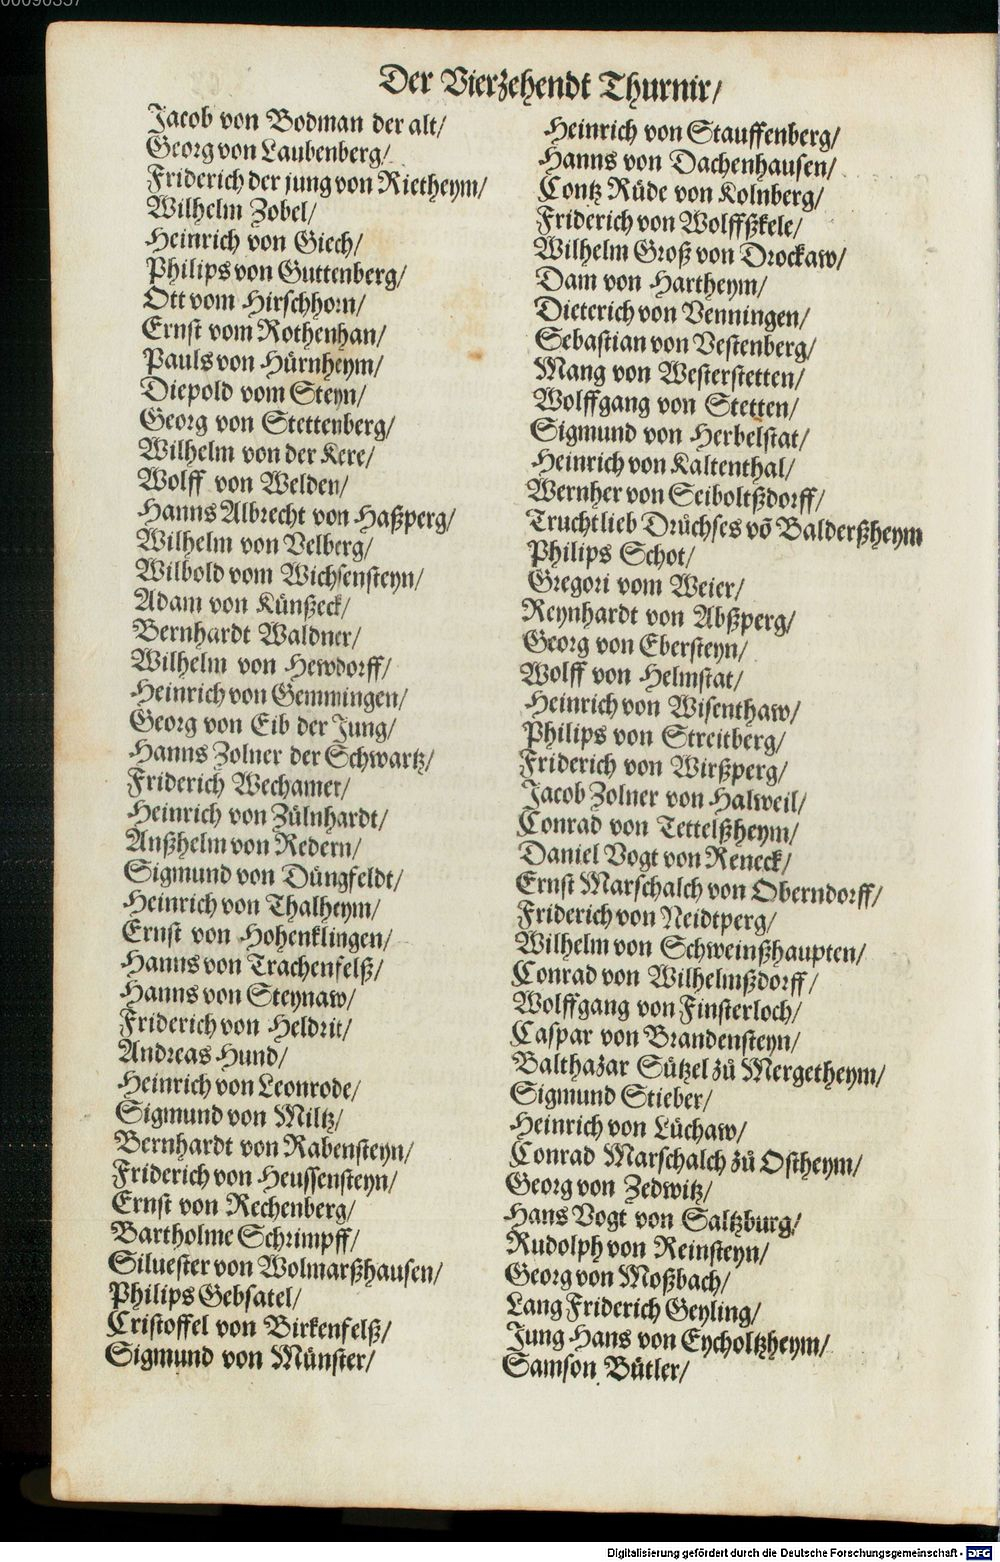 00090357
Der Vierzehendt Thurnir/
Jacob von Bodman der alt/
Georg von Laubenberg/
Friderich der jung von Rietheym/
Wilhelm Zobel/
Heinrich von Giech/
Philips von Guttenberg/
Ott vom Hirschhorn/
Ernst vom Rothenhan/
Pauls von Hürnheym/
Diepold vom Steyn/
Georg von Stettenberg/
Wilhelm von der Kere/
Wolff von Welden/
Hanns Albrecht von Haßperg/
Wilhelm von Velberg/
Wilbold vom Wichsensteyn/
Adam von Künßeck/
Bernhardt Waldner/
Wilhelm von Hewdorff/
Heinrich von Gemmingen/
Georg von Eib der Jung/
Hanns Zolner der Schwartz/
Friderich Wechamer/
Heinrich von Zülnhardt/
Anßhelm von Redern/
Sigmund von Düngfeldt/
Heinrich von Thalheym/
Ernst von Hohenklingen/
Hanns von Trachenfelß/
Hanns von Steynaw/
Friderich von Heldrit/
Andreas Hund/
Heinrich von Leonrode/
Sigmund von Miltz/
Bernhardt von Rabensteyn/
Friderich von Heussensteyn/
Ernst von Rechenberg/
Bartholme Schrimpff/
Siluester von Wolmarßhausen/
Philips Gebsatel/
Cristoffel von Birkenfelß/
Sigmund von Münster/
Heinrich von Stauffenberg/
Hanns von Dachenhausen/
Contz Rüde von Kolnberg/
Friderich von Wolffßkele/
Wilhelm Groß von Drockaw/
Dam von Hartheym/
Dieterich von Venningen/
Sebastian von Vestenberg/
Mang von Westerstetten/
Wolffgang von Stetten/
Sigmund von Herbelstat/
Heinrich von Kaltenthal/
Wernher von Seiboltßdorff/
Truchtlieb Drüchses võ Balderßheym
Philips Schot/
Gregori vom Weier/
Reynhardt von Abßperg/
Georg von Ebersteyn/
Wolff von Helmstat/
Heinrich von Wisenthaw/
Philips von Streitberg/
Friderich von Wirßperg/
Jacob Zolner von Halweil/
Conrad von Tettelßheym/
Daniel Vogt von Reneck/
Ernst Marschalch von Oberndorff/
Friderich von Neidtperg/
Wilhelm von Schweinßhaupten/
Conrad von Wilhelmßdorff/
Wolffgang von Finsterloch/
Caspar von Brandensteyn/
Balthazar Sützel zů Mergetheym/
Sigmund Stieber/
Heinrich von Lüchaw/
Conrad Marschalch zů Ostheym/
Georg von Zedwitz/
Hans Vogt von Saltzburg/
Rudolph von Reinsteyn/
Georg von Moßbach/
Lang Friderich Geyling/
Jung Hans von Eycholtzheym/
Samson Bütler/
Digitalisierung gefördert durch die Deutsche Forschungsgemeinschaft - DFG